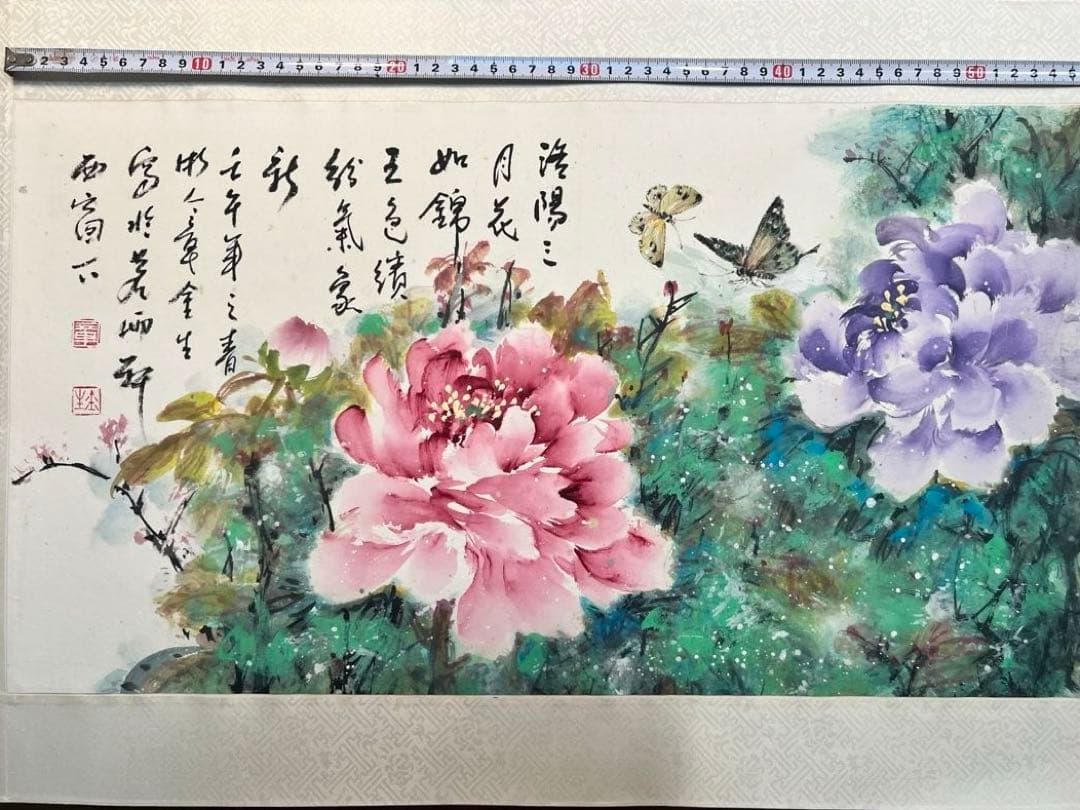 2 3 4 5 6 7 8 9 10 1 2 3 4 5 6 7 8 9 20 1 2 3 4 5 6 7 8 9 30 1 2 3 4 5 6 7 8 9 40 1 2 3 4 5 6 7 8 9 50 1 2 3 4 5
洛陽三
月花
如錦
五色繽
紛氣象
新
壬午年之春
浙人章金生
寫於雨軒
西窗下
章